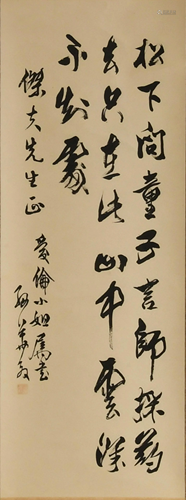 松下問童子言師採藥
去只在此山中雲深
不知處
傑夫先生正
愛倫小姐屬書